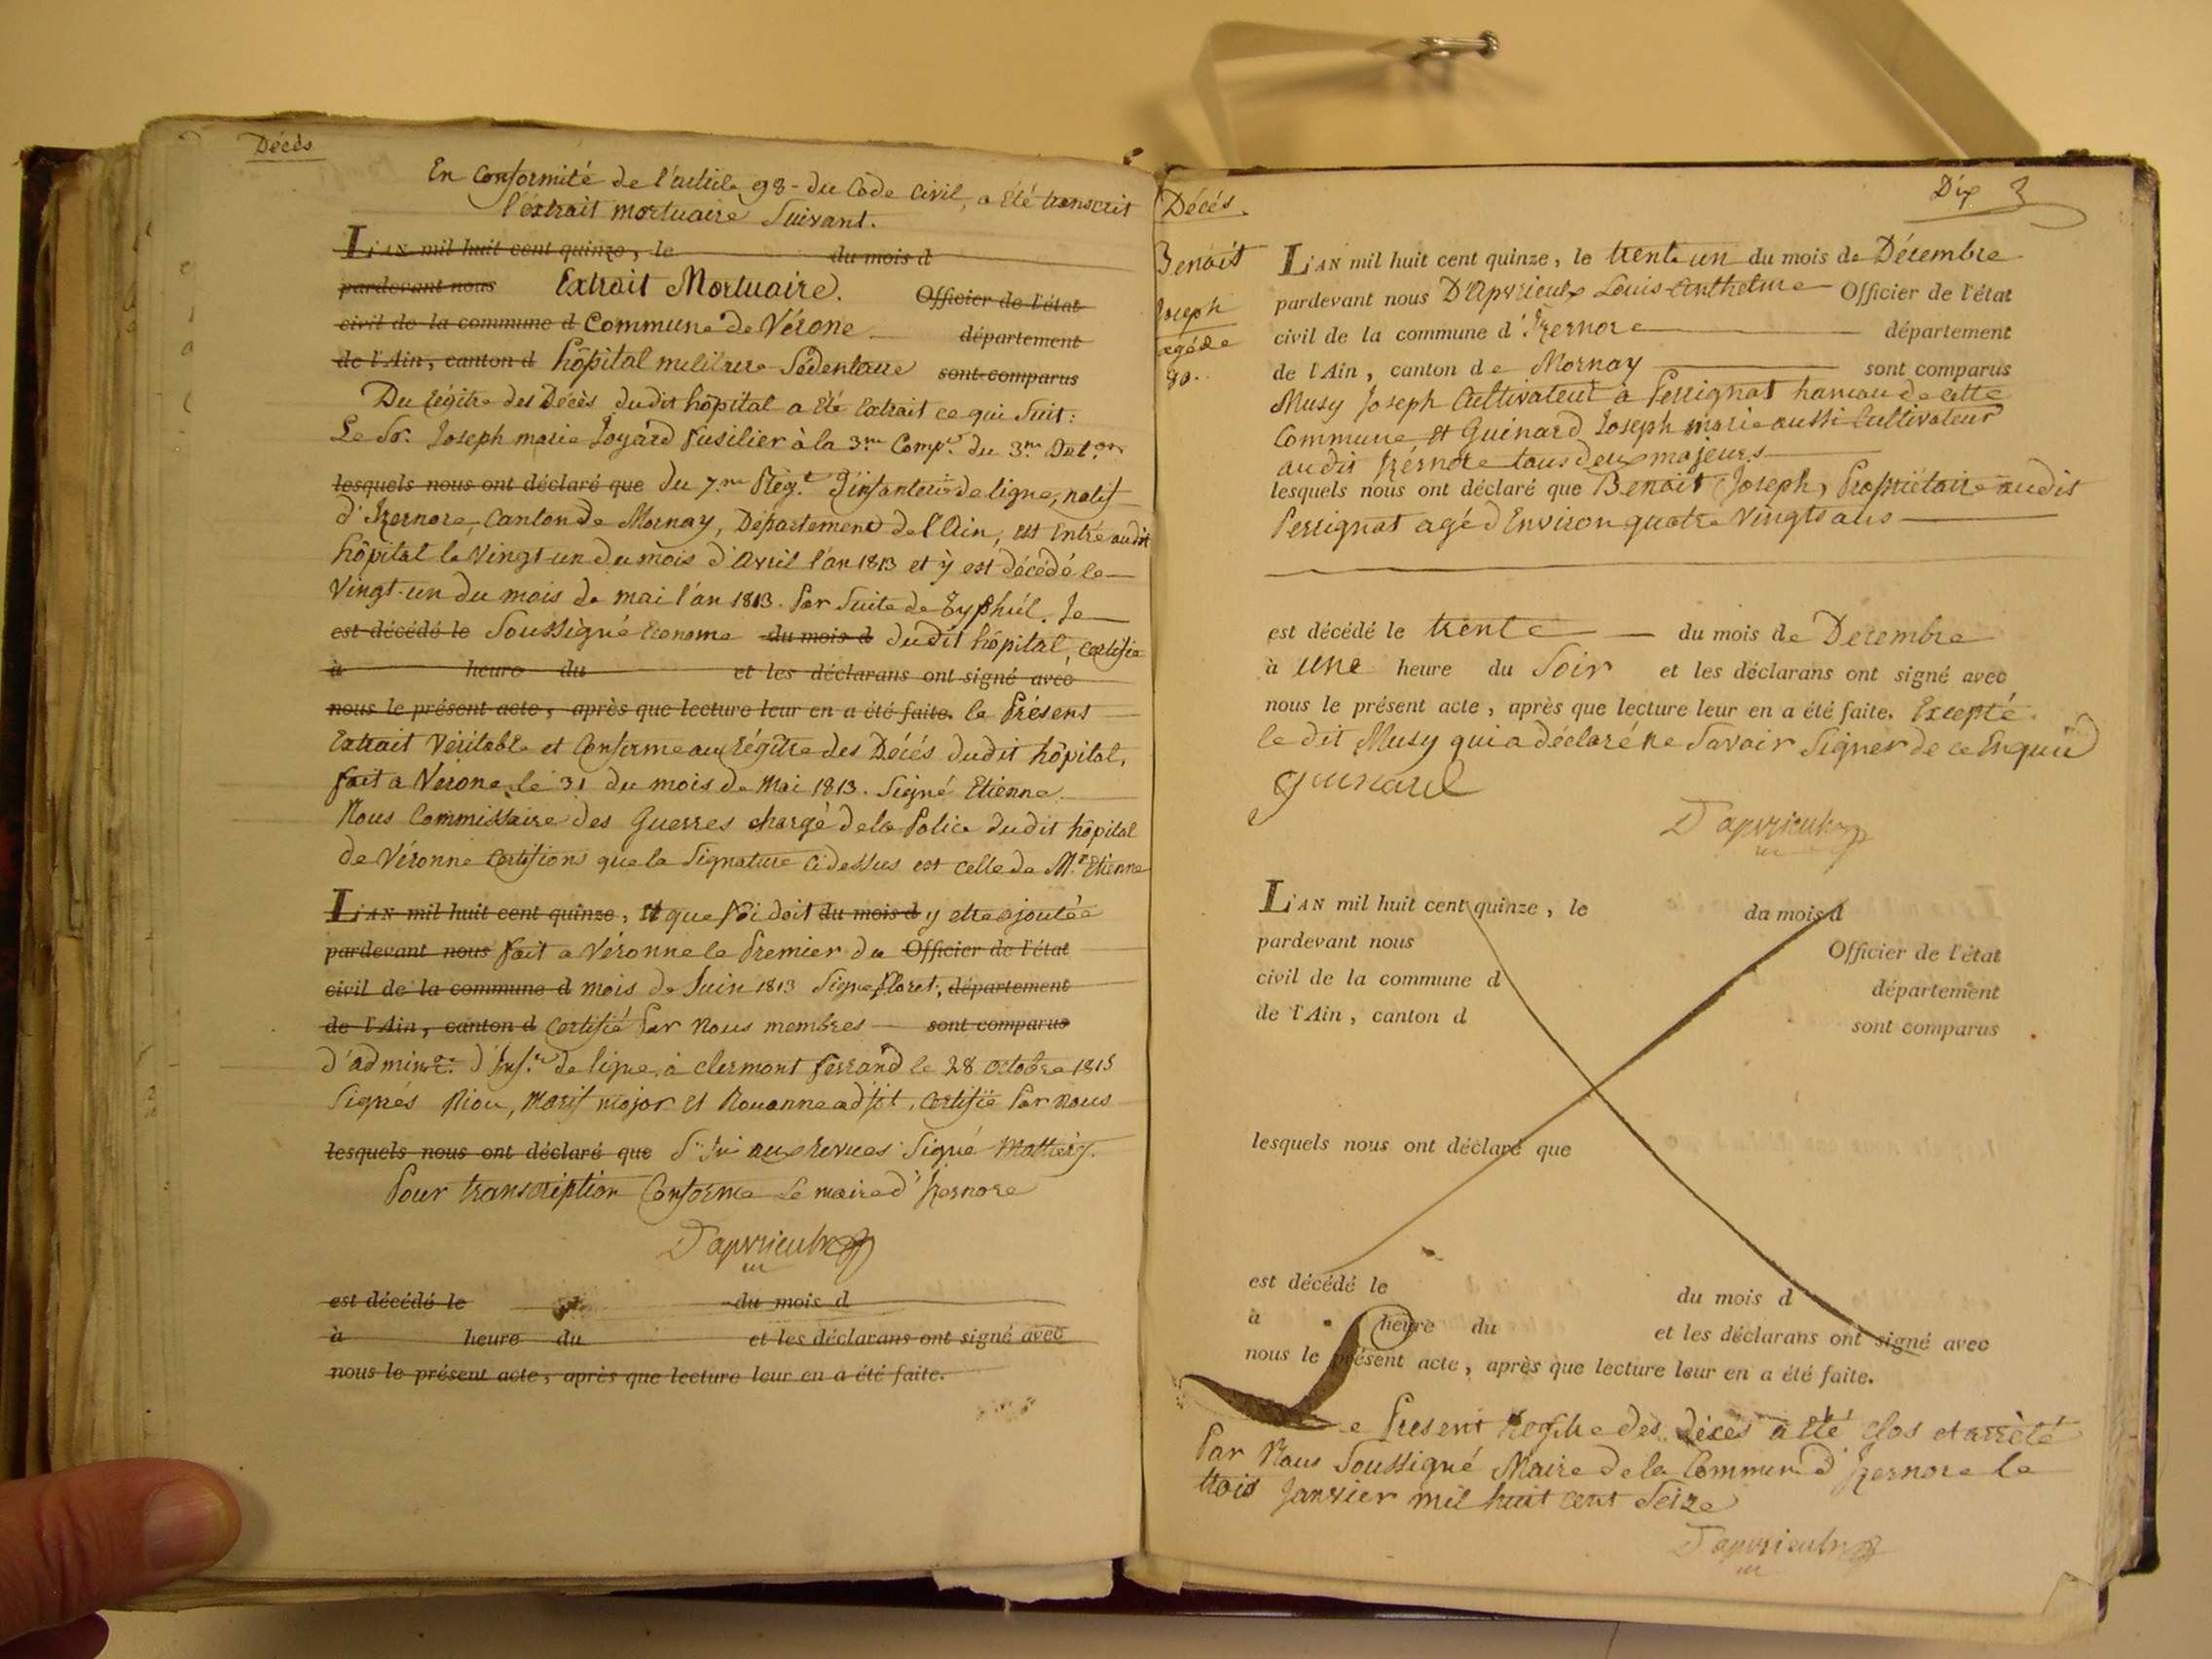 Décès
En Conformité de l'article 98 - du Code Civil, a été transcrit
l'extrait mortuaire Suivant.
L'AN mil huit cent quinze, le du mois d
pardevant nous Extrait Mortuaire. Officier de l'état
civil de la commune d Commune de Vérone département
de l'Ain, canton d hôpital militaire Sédentaire sont comparus
Du régître des Décès dudit hôpital a été Extrait ce qui Suit :
Le Sr. Joseph marie Joyard fusilier à la 3.me Comp.e du 3.me
lesquels nous ont déclaré que du 7.me Rég.t d'infanterie de ligne, natif
d'Izernore, Canton de Mornay, Département de l'Ain, est Entré audit
hôpital le Vingt un du mois d'avril l'an 1813 et y est décédé le
Vingt-un du mois de mai l'an 1813. Par Suite de . Je
est décédé le Soussigné Econome du mois d dudit hôpital, certifie
à heure du et les déclarans ont signé avec
nous le présent acte, après que lecture leur en a été faite. le Présent
Extrait Véritable et Conforme au régître des Décés dudit hôpital,
fait a Vérone, le 31 du mois de Mai 1813. Signé Etienne
Nous Commissaire des Guerres chargé de la Police dudit hôpital
de Véronne Certifions que la Signature cidessus est celle de M.r Etienne
L'AN mil huit cent quinze, et que foi doit du mois d y etre ajoutée
pardevant nous fait a Véronne le Premier du Officier de l'état
civil de la commune d mois de Juin 1813 Signé floret, département
de l'Ain, canton d Certifié Par Nous membres sont comparus
d' d'inf.ie de ligne, à clermont ferrand le 28 octobre 1815
Signés Riou, major et Rouanne adjt, Certifié Par nous
lesquels nous ont déclaré que aux revues Signé
Pour transcription Conforme Le maire d'Izernore
Dapvrieulx
est décédé le du mois d
à heure du et les déclarans ont signé avec
nous le présent acte, après que lecture leur en a été faite.
Dix
Décés.
Benoit
Joseph
agé de
80.
L'AN mil huit cent quinze, le trente un du mois de Décembre
pardevant nous D'Apvrieulx Louis Anthelme Officier de l'état
civil de la commune d'Izernore département
de l'Ain, canton de Mornay sont comparus
Musy Joseph Cultivateur a Perrignat hameau de cette
Commune, et Guinard Joseph marie aussi Cultivateur
audit Izérnore tous deux majeurs
lesquels nous ont déclaré que Benoit Joseph, Propriétaire audit
Perrignat agé d'Environ quatre Vingts ans
est décédé le trente du mois de Decembre
à une heure du Soir et les déclarans ont signé avec
nous le présent acte, après que lecture leur en a été faite. Excepté
le dit Musy qui a déclaré ne Savoir Signer de ce Enquis
guinard
Dapvrieulx
L'AN mil huit cent quinze, le du mois d
pardevant nous Officier de l'état
civil de la commune d département
de l'Ain, canton d sont comparus
lesquels nous ont déclaré que
est décédé le du mois d
à heure du et les déclarans ont signé avec
nous le présent acte, après que lecture leur en a été faite.
Le Present Regitre des décès a été Clos et arrèté
Par Nous Soussigné Maire de la Commune d'Izernore le
trois Janvier mil huit cent Seize
Dapvrieulx